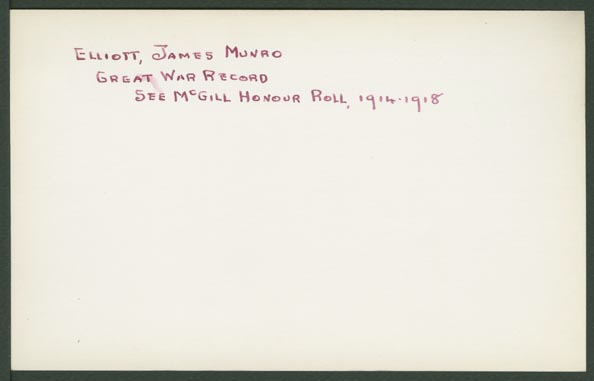 Elliott, James Munro
Great War Record
See McGill Honour Roll, 1914-1918